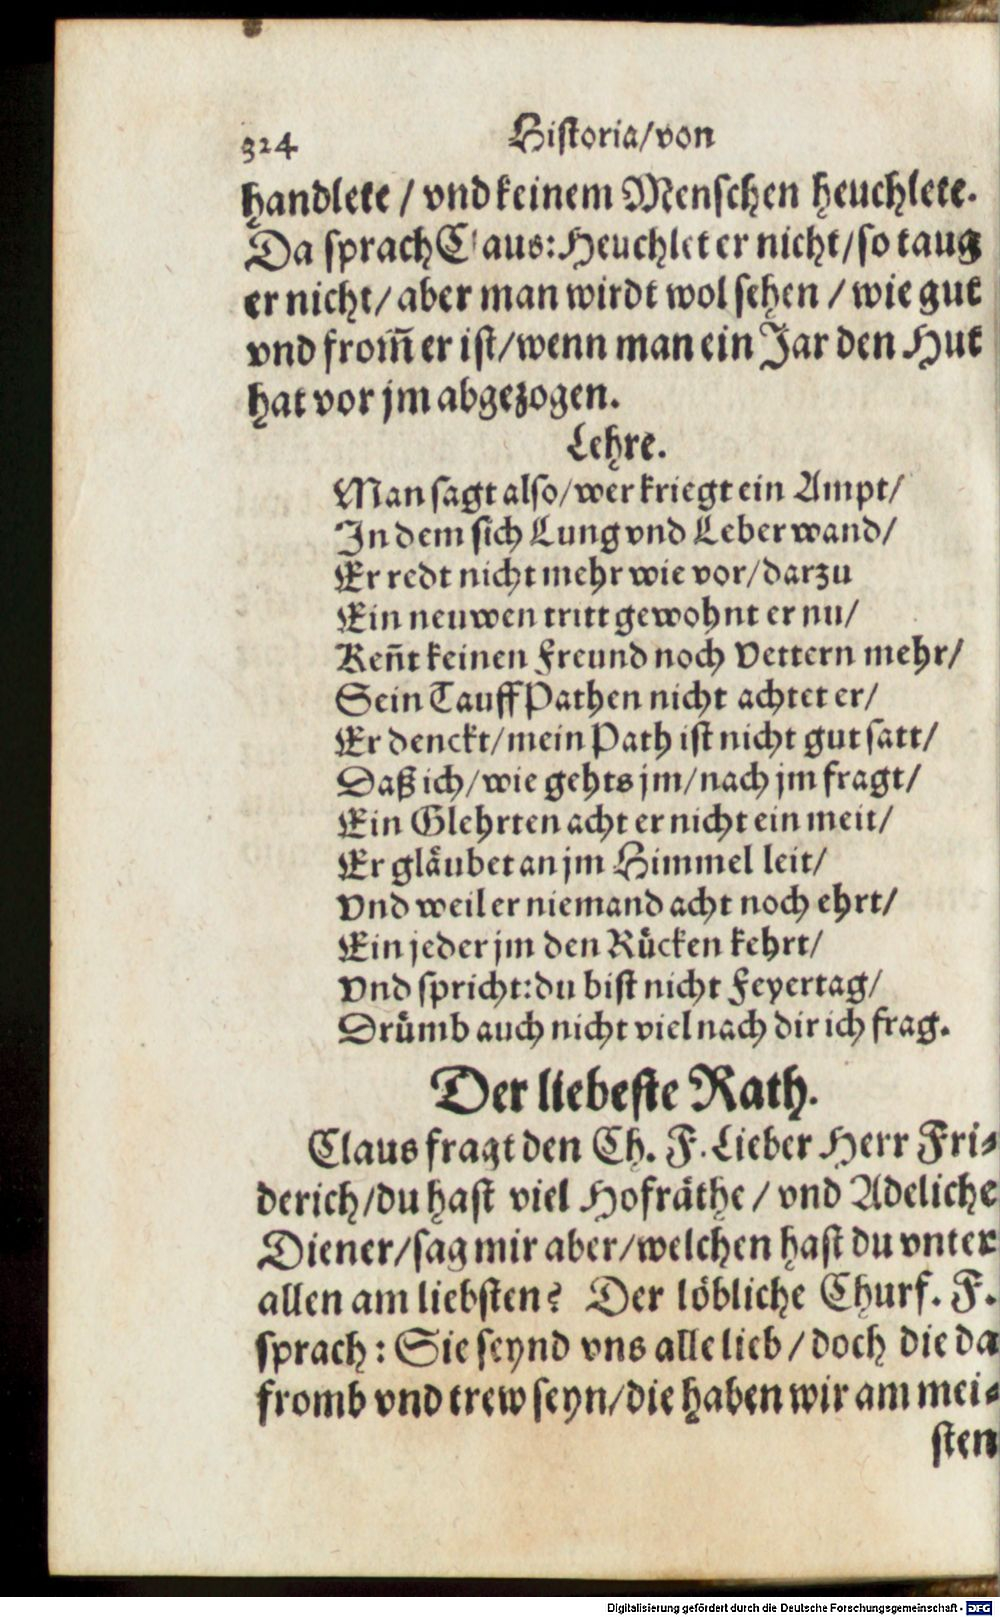 324 Historia/von
handlete / vnd keinem Menschen heuchlete.
Da sprach Claus: Heuchlet er nicht/so taug
er nicht/ aber man wirdt wol sehen / wie gut
vnd from̃ er ist/wenn man ein Jar den Hut
hat vor jm abgezogen.
Lehre.
Man sagt also/wer kriegt ein Ampt/
In dem sich Lung vnd Leber wand/
Er redt nicht mehr wie vor/darzu
Ein neuwen tritt gewohnt er nu/
Keñt keinen Freund noch Vettern mehr/
Sein Tauff Pathen nicht achtet er/
Er denckt/mein Path ist nicht gut satt/
Daß ich/wie gehts jm/nach jm fragt/
Ein Glehrten acht er nicht ein meit/
Er gläubet an jm Himmel leit/
Vnd weil er niemand acht noch ehrt/
Ein jeder jm den Rücken kehrt/
Vnd spricht: du bist nicht Feyertag/
Drümb auch nicht viel nach dir ich frag.
Der liebeste Rath.
Claus fragt den Ch. F. Lieber Herr Fri-
derich/du hast viel Hofräthe / vnd Adeliche
Diener/sag mir aber/welchen hast du vnter
allen am liebsten? Der löbliche Churf. F.
sprach: Sie seynd vns alle lieb / doch die da
fromb vnd trew seyn/die haben wir am mei-
sten
Digitalisierung gefördert durch die Deutsche Forschungsgemeinschaft - DFG